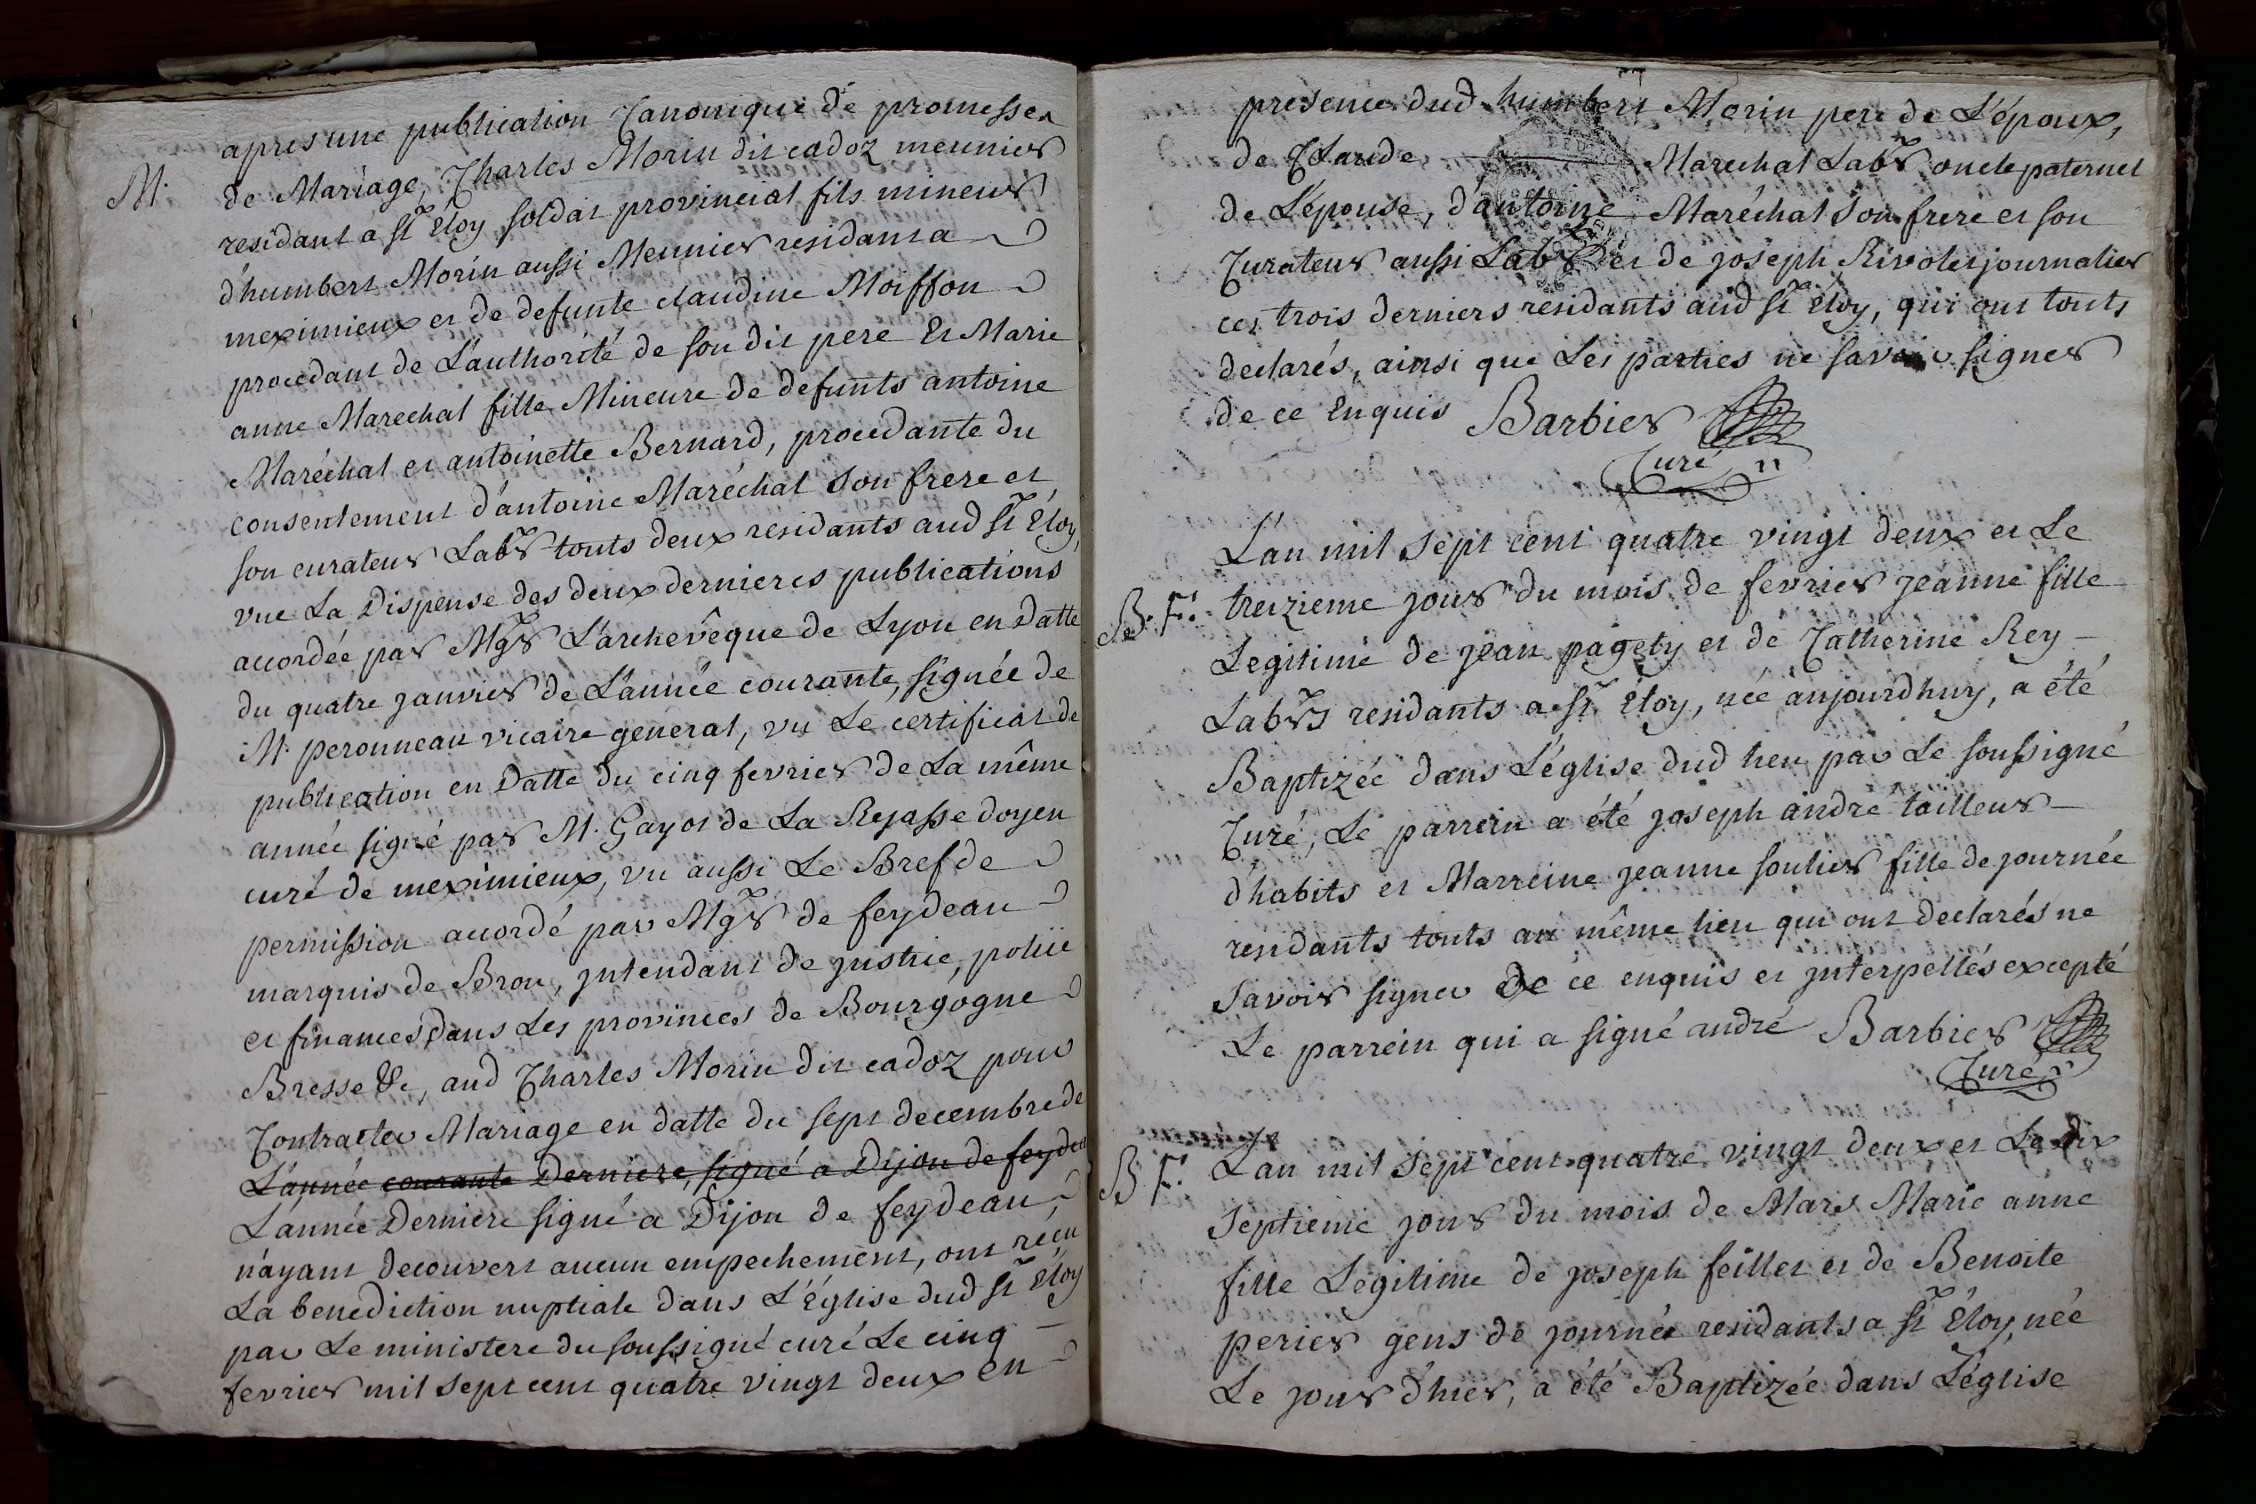 apres une publication Canonique de promesses
M. de Mariage, Charles Morin dit cadoz meunier
residant a St Éloy soldat provincial fils mineur
d'humbert Morin aussi Meunier residant a
meximieux et de defunte claudine Moiffon
procedant de L'authorité de son dit pere Et Marie
anne Marechal fille Mineure de defunts antoine
Maréchal et antoinette Bernard, procedante du
consentement d'antoine Maréchal son frere et
son curateur Labr touts deux residants aud St Éloy,
vue La Dispense des deux dernieres publications
accordée par Mgr L'archevêque de Lyon en Datte
du quatre janvier de L'année courante, signée de
M. peronneau vicaire general, vu Le certificat de
publication en Datte du cinq fevrier de La même
année signé par M. Gayot de La Rejasse doyen
curé de meximieux, vu aussi Le Bref de
permission accordé par Mgr de feydeau
marquis de Brou, jntendant de justice, police
et finances dans Les provinces de Bourgogne
Bresse &c, aud Charles Morin dit cadoz pour
Contracter Mariage en datte du sept decembre de
L'année courante Derniere, signé a Dijon de feydeau
L'année Derniere signé a Dijon de feydeau,
n'ayant decouvert aucun empechement, ont reçu
La benediction nuptiale dans L'Église dud St Éloy
par Le ministere du soussigné curé Le cinq
fevrier mil sept cent quatre vingt deux en
presence dud humbert Morin pere de L'époux,
de Claude Marechal Labr oncle paternel
de L'épouse, d'antoine Maréchal son frere et son
Curateur aussi Labr et de joseph Rivolet journalier
ces trois derniers residants aud St Éloy, qui ont touts
declarés, ainsi que Les parties ne savoir signer
de ce Enquis Barbier
Curé
L'an mil sept cent quatre vingt deux et Le
B. F. treizieme jour du mois de fevrier jeanne fille
Legitime de jean pagety et de Catherine Rey
Labrs residants a St Éloy, née aujourdhuy, a été
Baptizée dans L'église dud lieu par Le soussigné
Curé, Le parrein a été joseph andré tailleur
d'habits et Marreine jeanne soulier fille de journée
residants touts au même lieu qui ont declarés ne
savoir signer De ce enquis et jnterpellés excepté
Le parrein qui a signé andré Barbier
Curé
B. F. L'an mil sept cent quatre vingt deux et Le dix
septieme jour du mois de Mars Marie anne
fille Legitime de joseph feillet et de Benoite
perier gens de journée residants a St Éloy, née
Le jour d'hier, a été Baptizée dans L'église